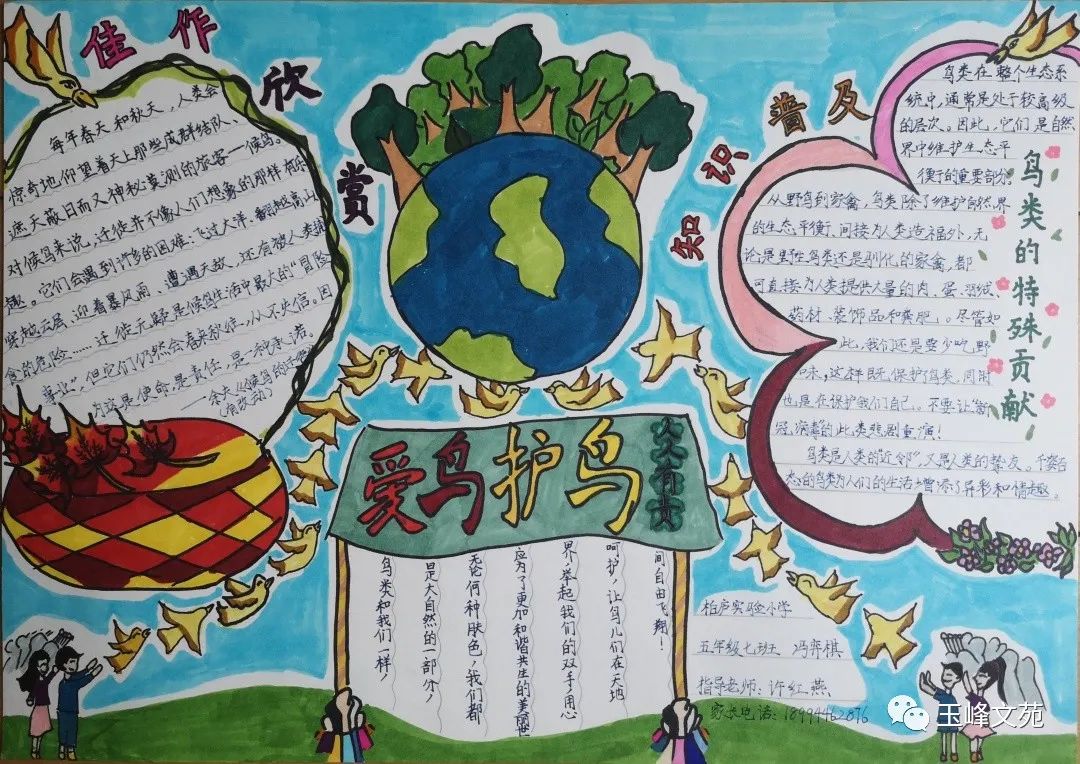 佳作欣赏
每年春天和秋天,人类会
惊奇地仰望着天上那些成群结队、
遮天蔽日而又神秘莫测的旅客—候鸟。
对候鸟来说,迁徙并不像人们想象的那样有乐
趣。它们会遇到许多的困难:飞过大洋、翻越高山
穿越云层、迎着暴风雨、遭遇天敌,还有被人类捕
食的危险……迁徙无疑是候鸟生活中最大的“冒险
事业”,但它们仍然会春来秋往,从不失信。因
为这是使命,是责任,是一种承诺。
(有改动)
知识普及
鸟类的特殊贡献
鸟类在整个生态系
统中,通常是处于较高级
的层次。因此,它们是自然
界中维护生态平
衡的重要部分。
从野鸟到家禽,鸟类除了维护自然界
的生态平衡、间接为人类造福外,无
论是野生鸟类还是驯化的家禽,都
可直接为人类提供大量的肉、蛋、羽绒、
药材、装饰品和粪肥。尽管如
此,我们还是要少吃野
味,这样既保护鸟类,同时
也是在保护我们自己。不要让“新
冠病毒”的此类悲剧重演!
鸟类是人类的“近邻”,又是人类的挚友。千姿百
态的鸟类为人们的生活增添了异彩和情趣。
爱鸟护鸟
人人有责
鸟类和我们一样,
是大自然的一部分,
无论何种肤色,我们都
应为了更加和谐共生的美丽世
界,举起我们的双手,用心
呵护,让鸟儿们在天地
间自由飞翔!
柏庐实验小学
五年级七班 冯弈棋
指导老师:许红燕
家长电话:18994462876
玉峰文苑